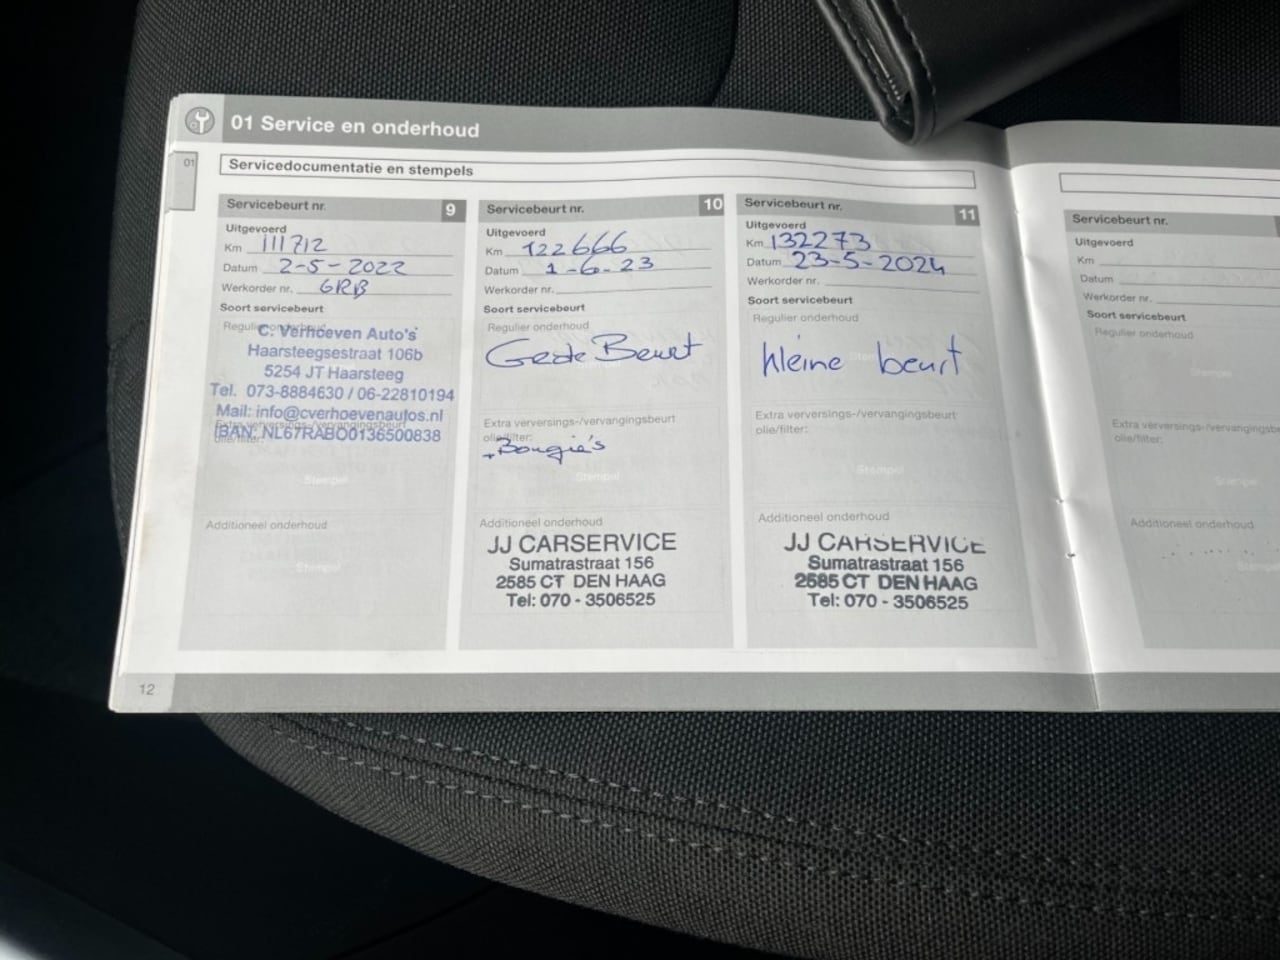 01 Service en onderhoud
01
Servicedocumentatie en stempels
Servicebeurt nr. 9
Uitgevoerd
Km 111712
Datum 2-5-2022
Werkorder nr. GRB
Soort servicebeurt
Regulier onderhoud
C. Verhoeven Auto's
Haarsteegsestraat 106b
5254 JT Haarsteeg
Tel. 073-8884630 / 06-22810194
Mail: info@cverhoevenautos.nl
Extra verversings-/vervangingsbeurt
olie/filter:
IBAN: NL67RABO0136500838
Stempel
Additioneel onderhoud
Stempel
Servicebeurt nr. 10
Uitgevoerd
Km 122666
Datum 1-6-23
Werkorder nr.
Soort servicebeurt
Regulier onderhoud
Beurt
Stempel
Extra verversings-/vervangingsbeurt
olie/filter:
+Bougie's
Stempel
Additioneel onderhoud
JJ CARSERVICE
Sumatrastraat 156
2585 CT DEN HAAG
Tel: 070 - 3506525
Servicebeurt nr. 11
Uitgevoerd
Km 132273
Datum 23-5-2024
Werkorder nr.
Soort servicebeurt
Regulier onderhoud
kleine beurt
Stempel
Extra verversings-/vervangingsbeurt
olie/filter:
Stempel
Additioneel onderhoud
JJ CARSERVICE
Sumatrastraat 156
2585 CT DEN HAAG
Tel: 070 - 3506525
12
Servicebeurt nr.
Uitgevoerd
Km
Datum
Werkorder nr.
Soort servicebeurt
Regulier onderhoud
Stempel
Extra verversings-/vervangingsb
olie/filter:
Stempel
Additioneel onderhoud
Stempel